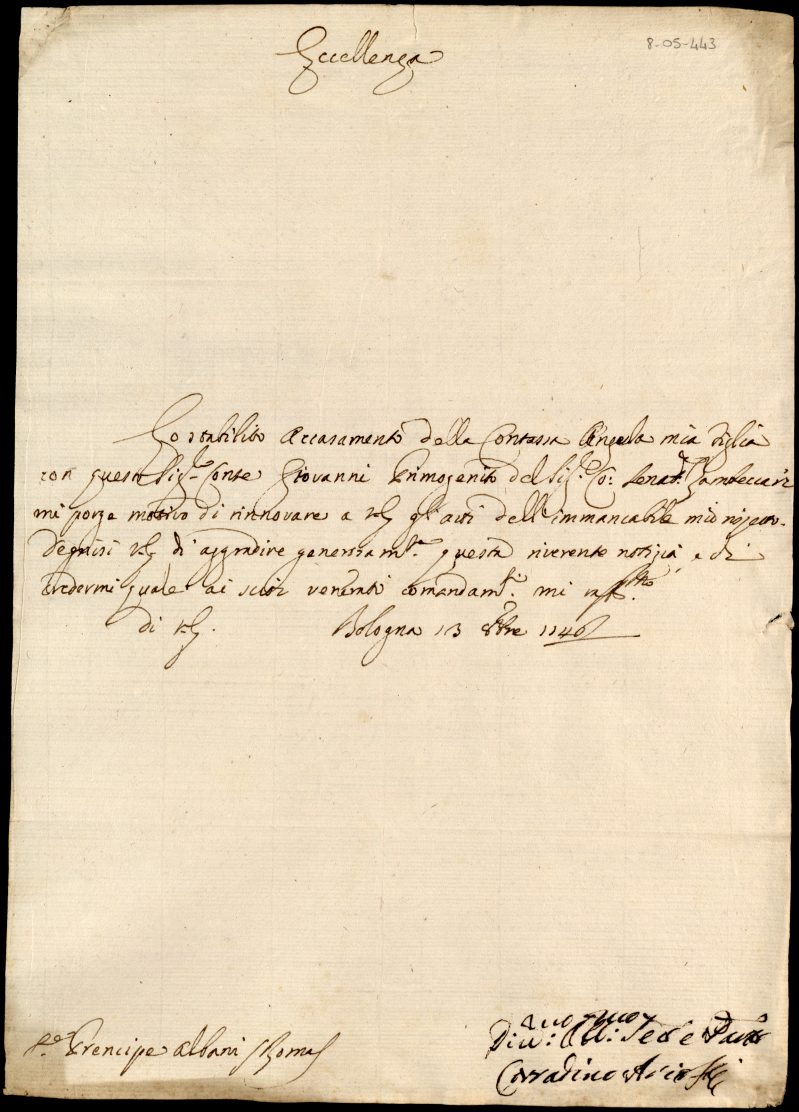 8-05-443
Eccellenza
Ho stabilito Accasamento della Contessa Angela mia figlia
con questo Sig.r Conte Giovanni Primogenito del Sig.r Co: Senat.r Zambeccari
mi porge motivo di rinnovare a V.E. gl'atti dell'immancabile mio rispetto.
Degnisi V.E. di aggradire generosam.te questa riverente notizia, e di
credermi quale ai suoi venerati comandam.ti mi raff.mo
di V.E. Bologna 13 8bre 1746
Prencipe Albani Roma
Div.mo Obl.mo Ser.e
Corradino Ariosti